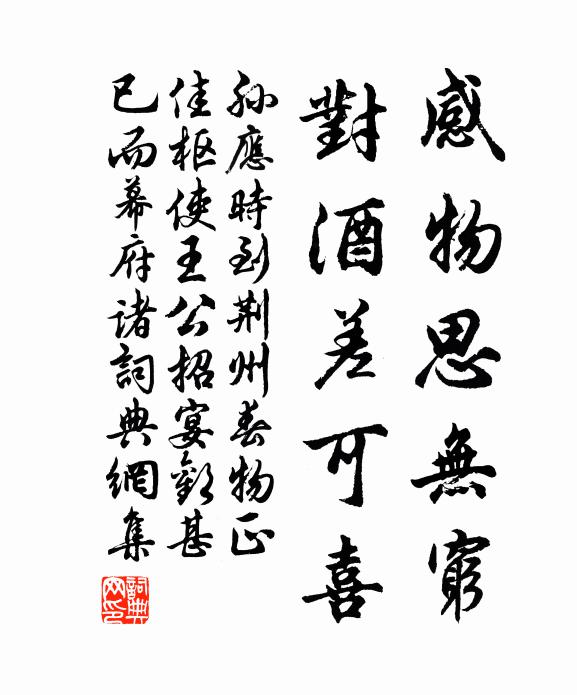 感物思無窮
對酒差可喜
孫應時到荆州春物正
佳枢使王公招宴歡甚
已而幕府諸詞典網集
詞典網印